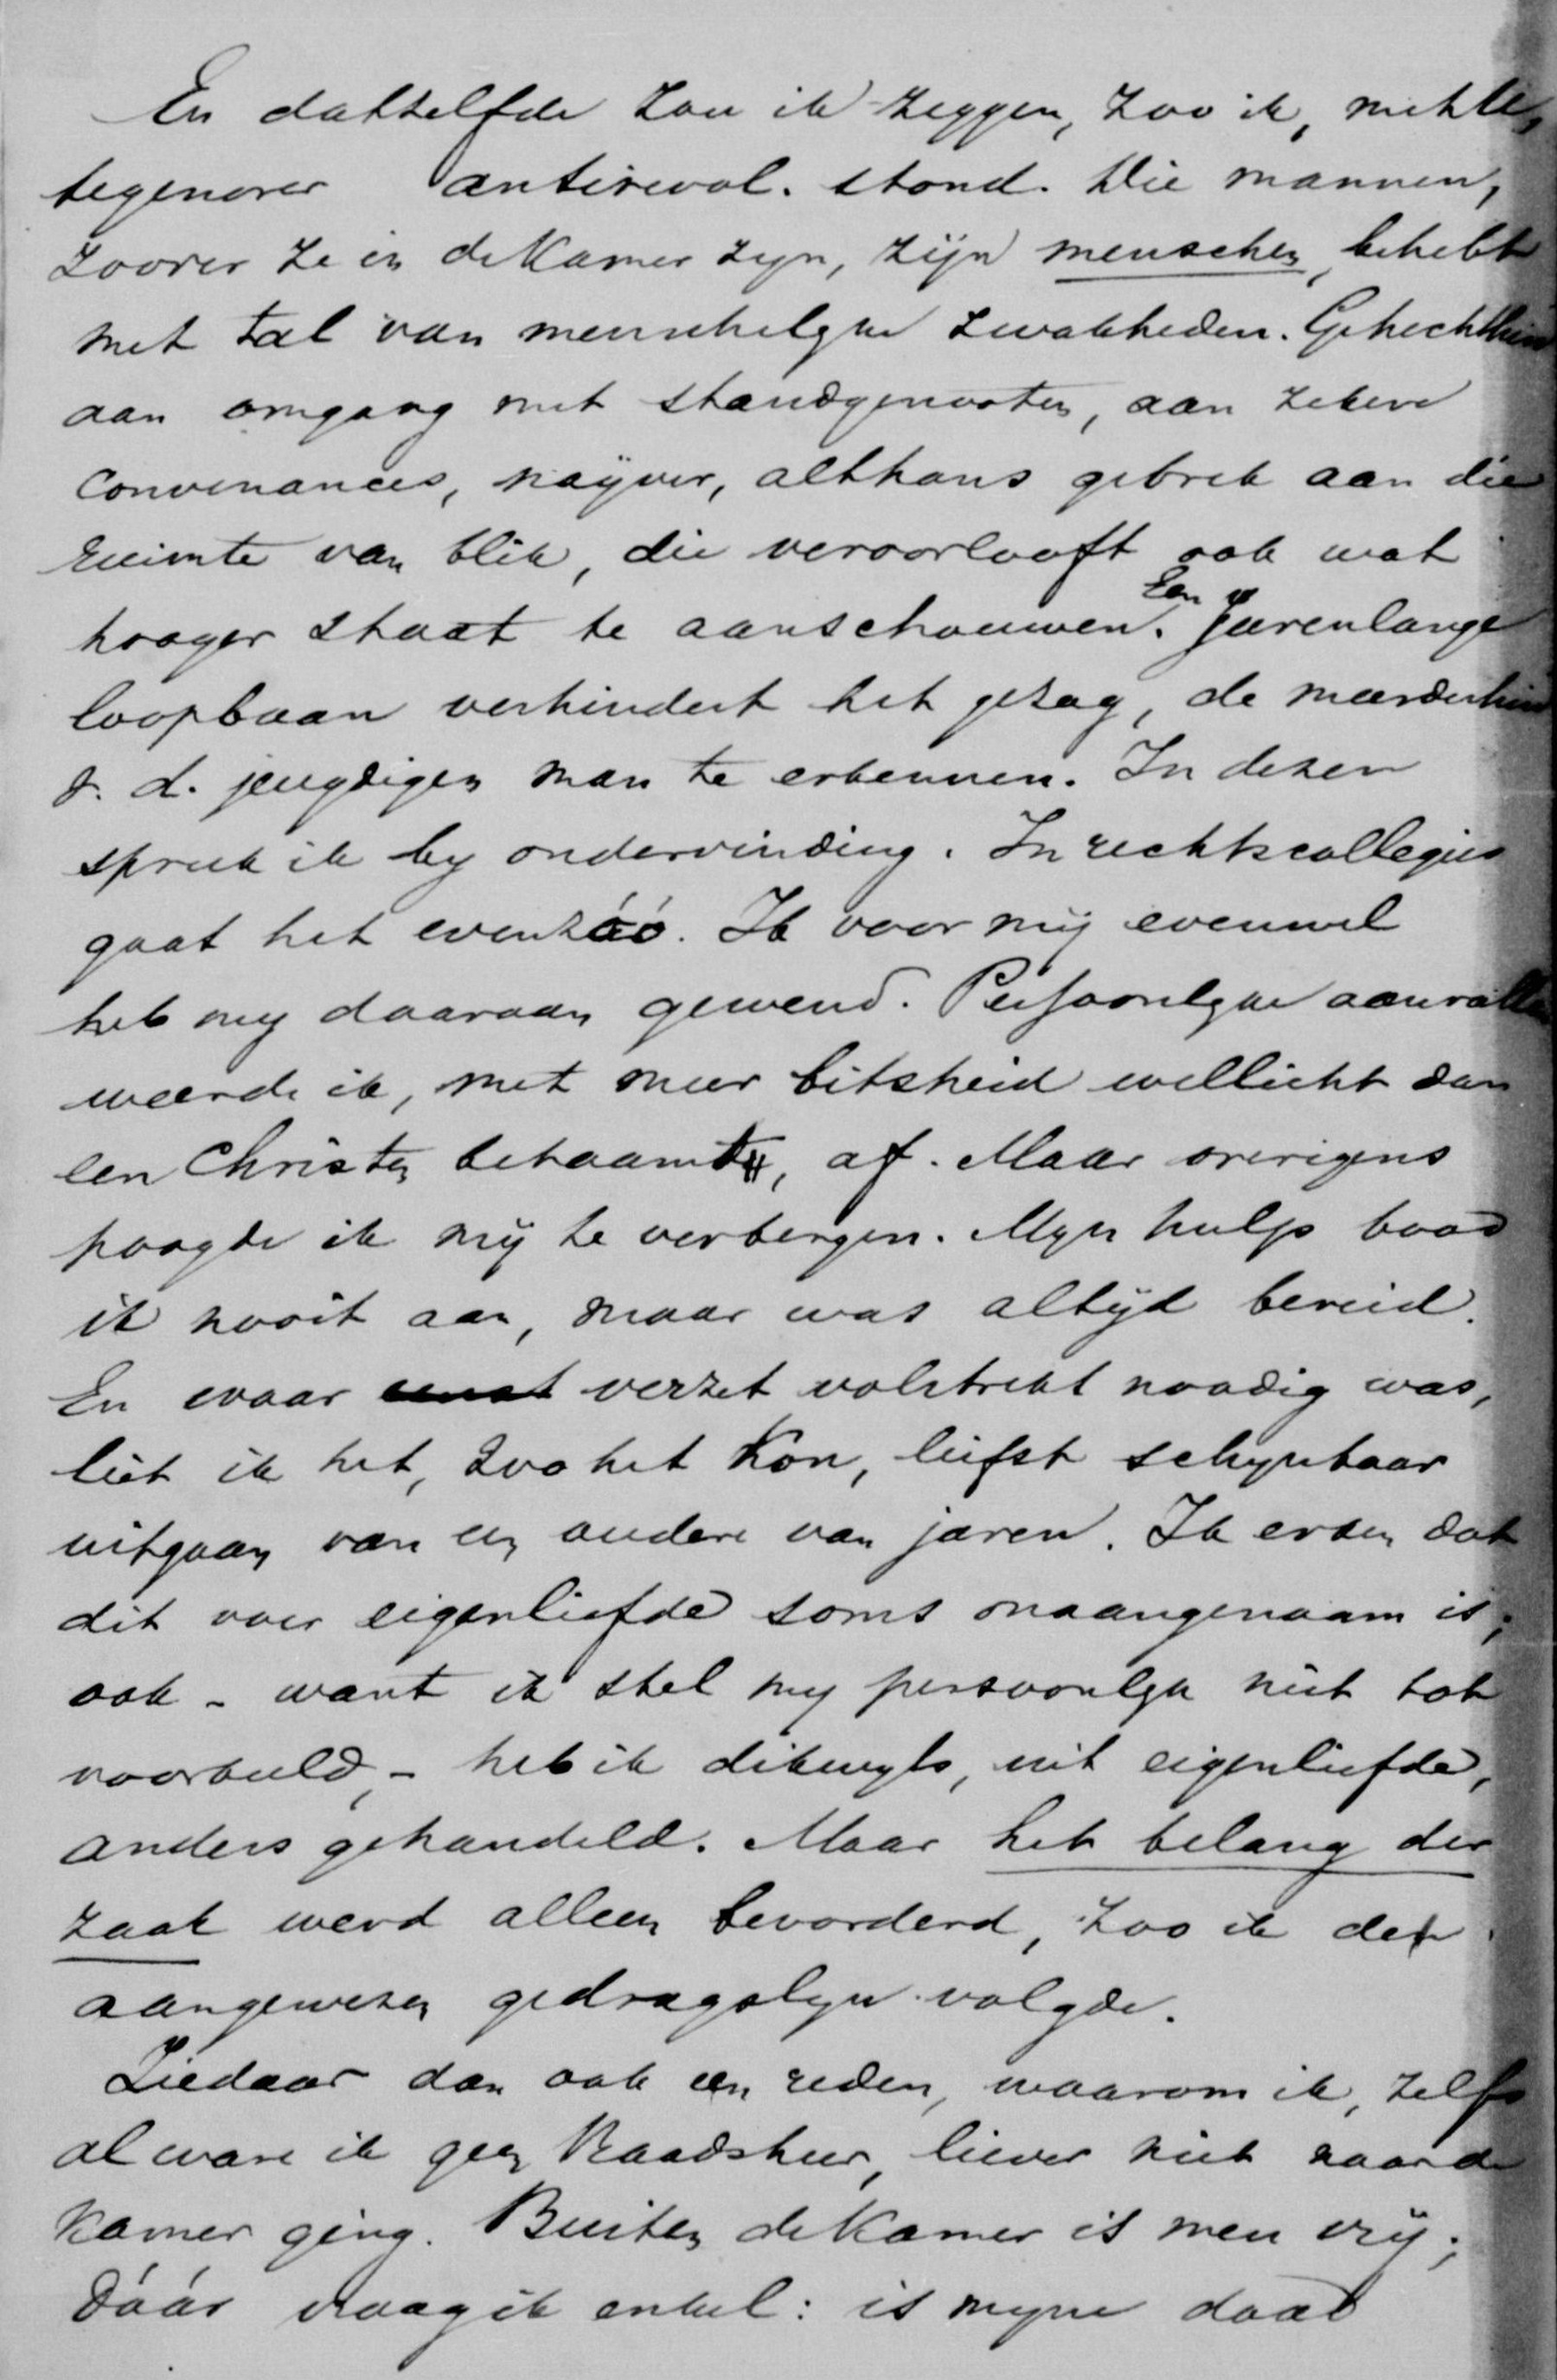 En datzelfde zou ik zeggen, zoo ik, mutatis,
tegenover antirevol. stond. Die mannen,
zoover ze in de Kamer zyn, zijn menschen, behebt
met tal van menschelyke zwakheden. Gehechtheid
aan omgang met standgenooten, aan zekere
convenances, naijver, althans gebrek aan die
ruimte van blik, die veroorlooft ook wat
hooger staat te aanschouwen. Een jarenlange
loopbaan verhindert het gezag, de meerderheid
v. d. jeugdigen man te erkennen. In dezen
spreek ik by ondervinding. In rechtscollegies
gaat het evenzóó. Ik voor mij evenwel
heb my daaraan gewend. Persoonlyke aanvallen
weerde ik, met meer bitsheid wellicht dan
een Christen betaamt, af. Maar overigens
poogde ik mij te verbergen. Myn hulp bood
ik nooit aan, maar was altijd bereid.
En waar verzet volstrekt noodig was,
liet ik het, zoo het kon, liefst schynbaar
uitgaan van een oudere van jaren. Ik erken dat
dit voor eigenliefde soms onaangenaam is;
ook - want ik stel my persoonlyk niet tot
voorbeeld, - heb ik dikwyls, uit eigenliefde,
anders gehandeld. Maar het belang der
zaak werd alleen bevorderd, zoo ik de
aangewezen gedragslyn volgde.
Ziedaar dan ook een reden, waarom ik, zelfs
al ware ik geen Raadsheer, liever niet naar de
Kamer ging. Buiten de Kamer is men vrij;
Dáár vraag ik enkel: is myne daad